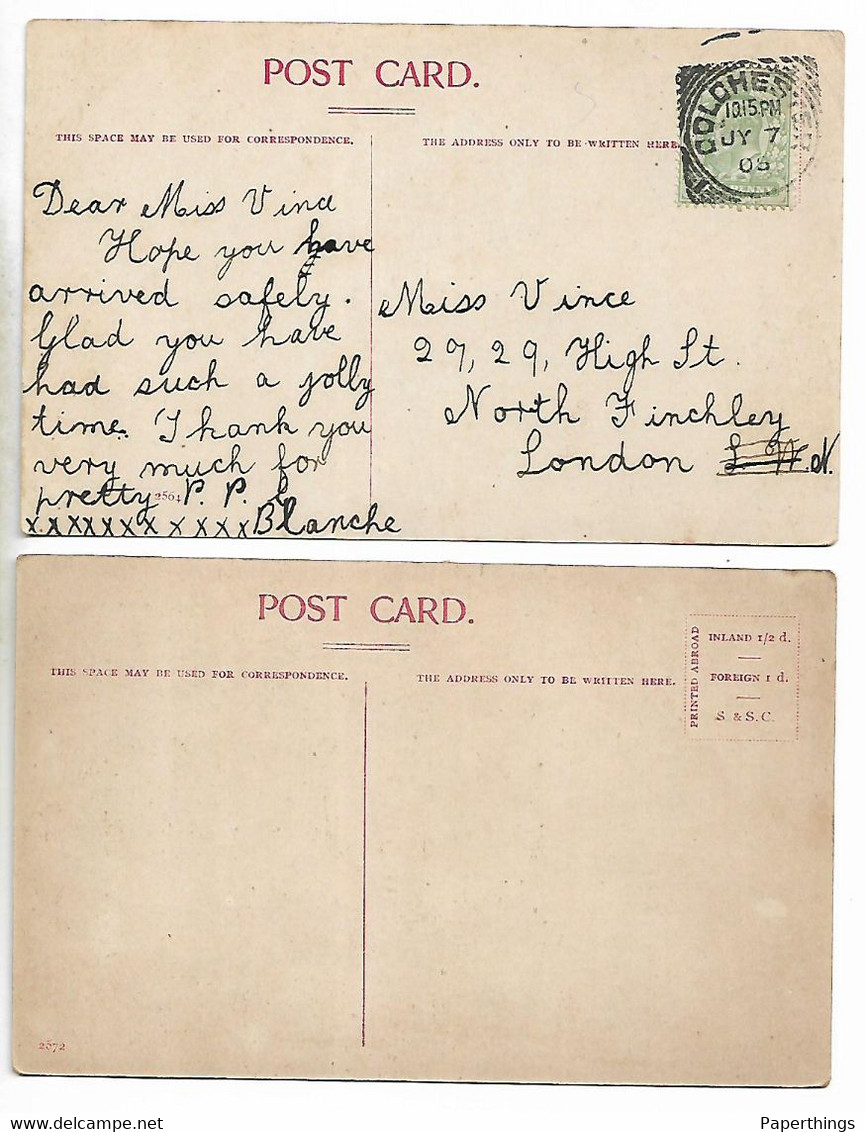 POST CARD.
THIS SPACE MAY BE USED FOR CORRESPONDENCE.
THE ADDRESS ONLY TO BE WRITTEN HERE.
COLCHES
10.15.PM
JY 7
PENNY
Dear Miss Vince
Hope you have
arrived safely.
Glad you have
had such a jolly
time. Thank you
very much for
pretty P. P. C
xxxxxxxxxxxx Blanche
2564
Miss Vince
27, 29, High St.
North Finchley
London N.
POST CARD.
THIS SPACE MAY BE USED FOR CORRESPONDENCE.
THE ADDRESS ONLY TO BE WRITTEN HERE.
PRINTED ABROAD
INLAND 1/2 d.
FOREIGN 1 d.
S & S. C.
2572
Paperthings